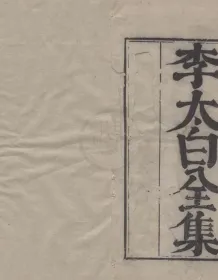 李太白全集